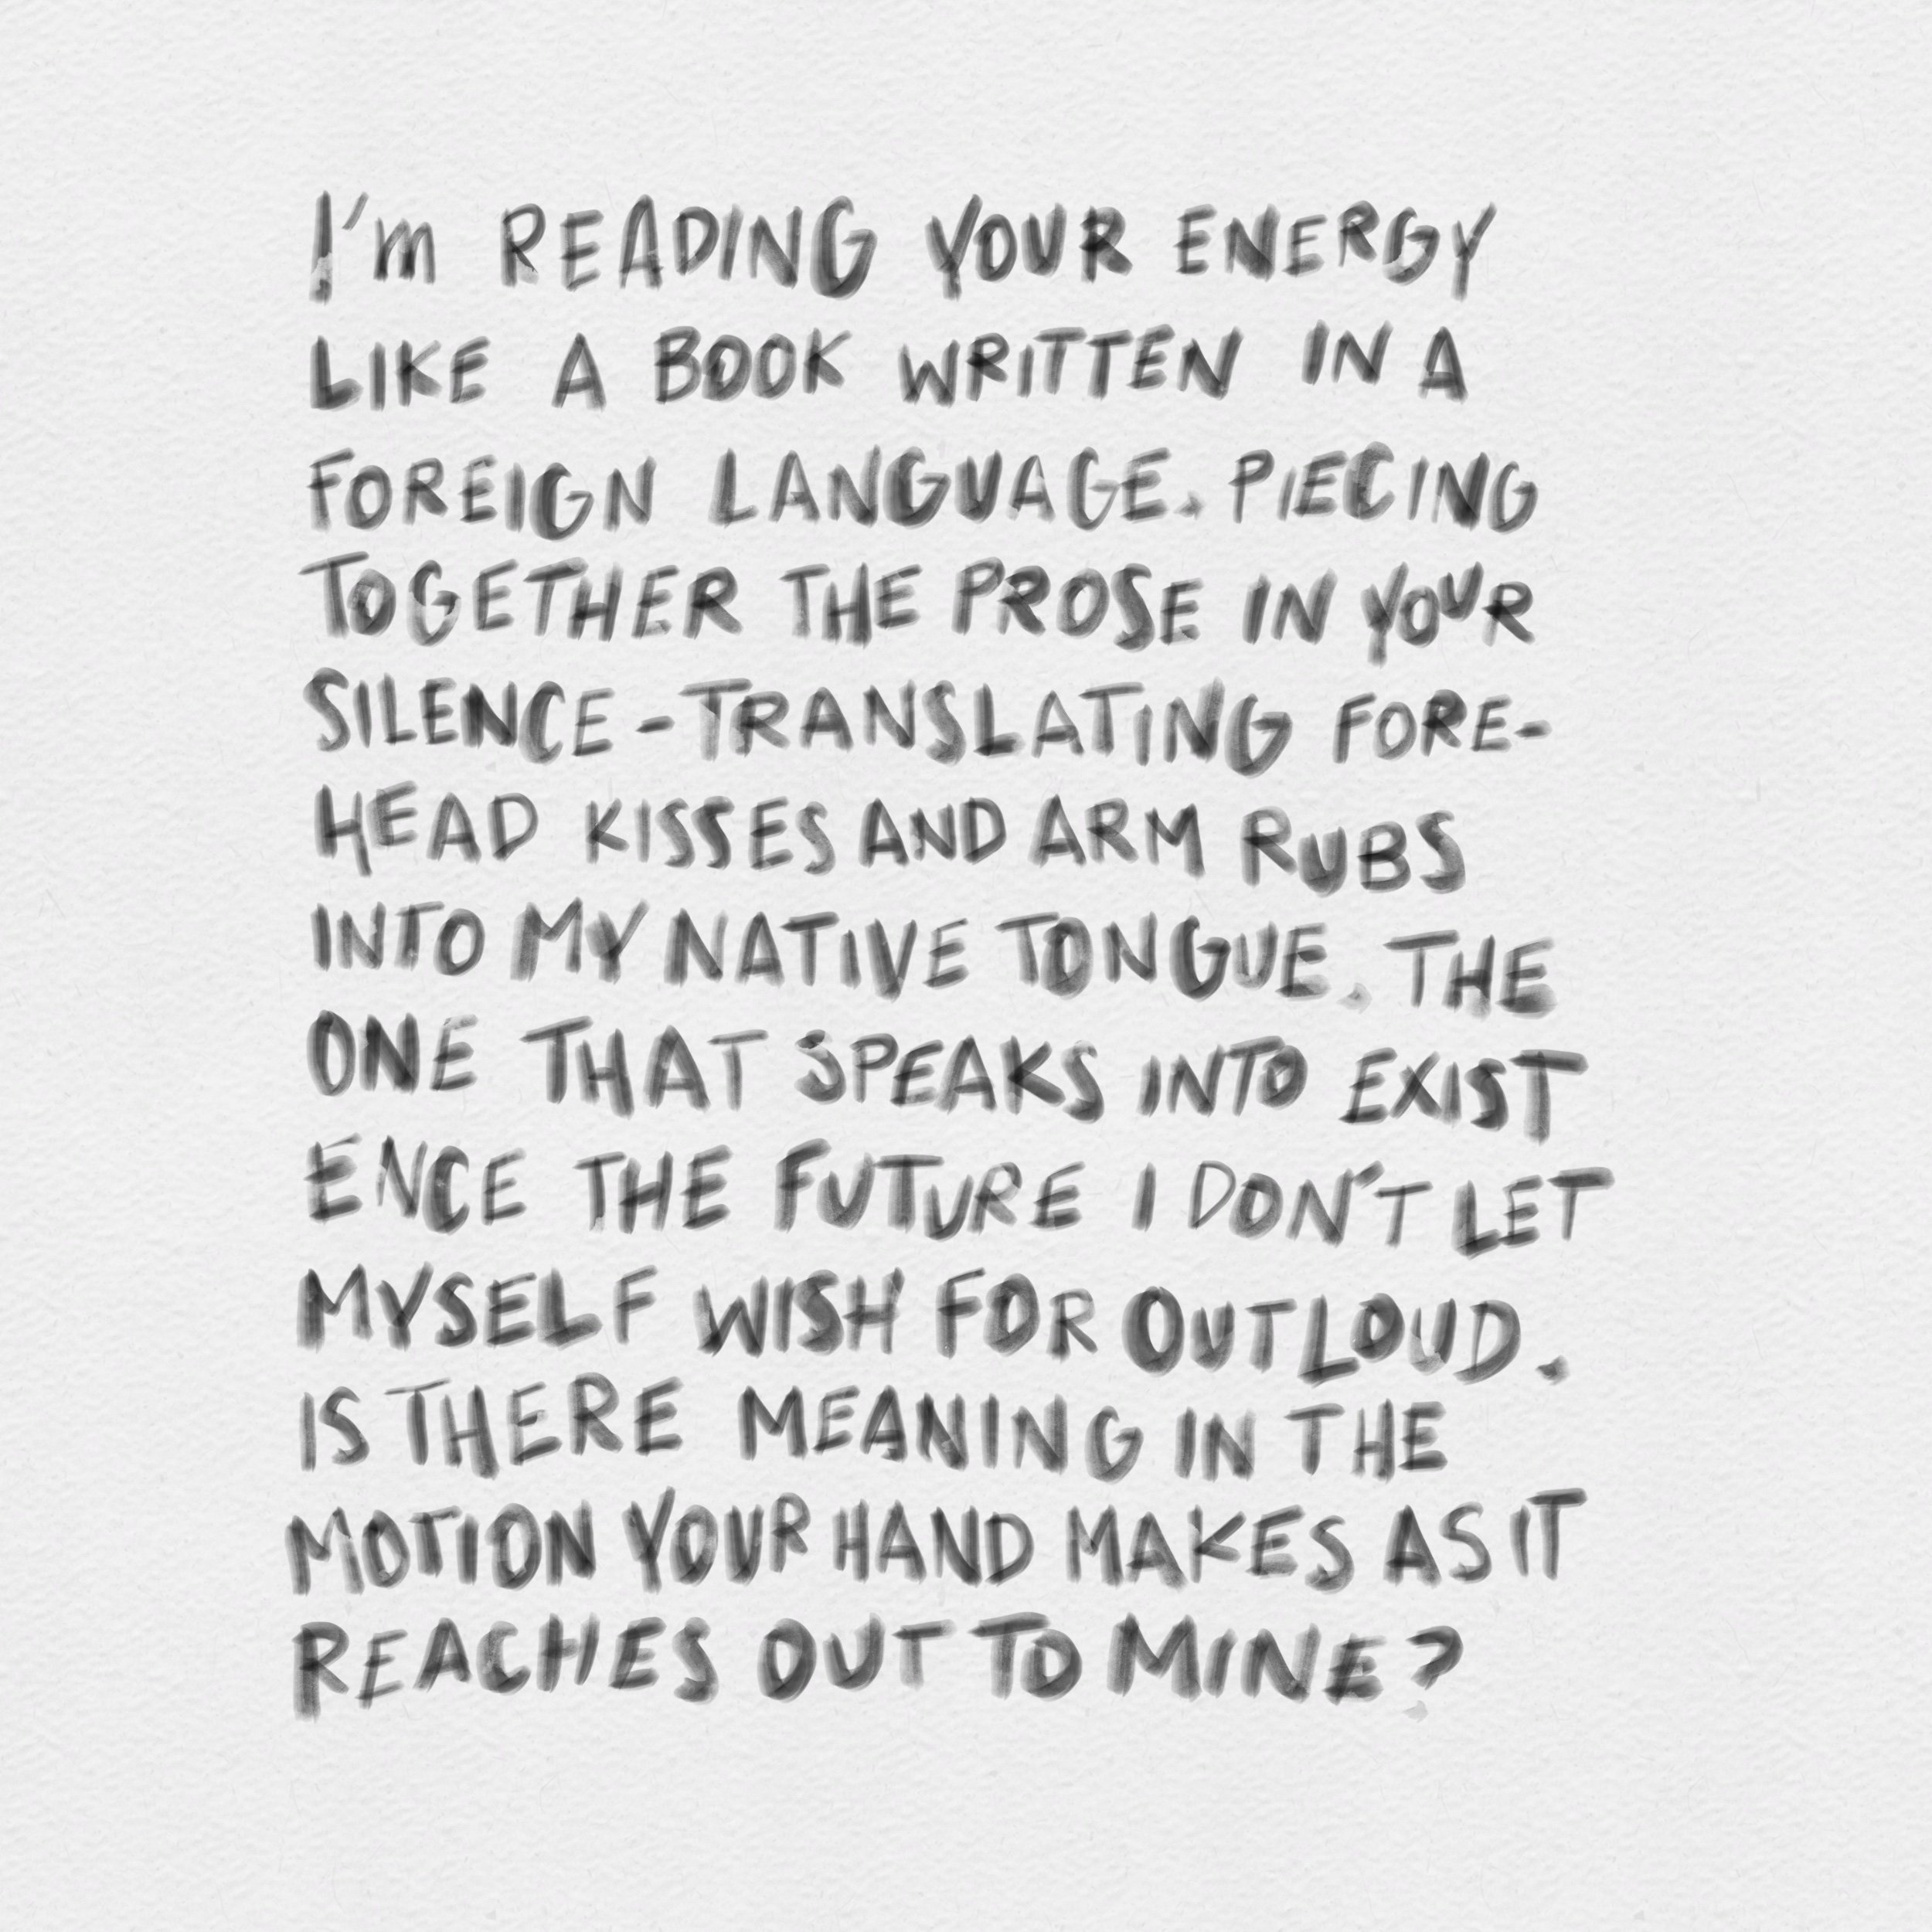 I'm READING YOUR ENERGY
LIKE A BOOK WRITTEN IN A
FOREIGN LANGUAGE. PIECING
TOGETHER THE PROSE IN YOUR
SILENCE-TRANSLATING FORE-
HEAD KISSES AND ARM RUBS
INTO MY NATIVE TONGUE. THE
ONE THAT SPEAKS INTO EXIST
ENCE THE FUTURE I DON'T LET
MYSELF WISH FOR OUT LOUD.
IS THERE MEANING IN THE
MOTION YOUR HAND MAKES AS IT
REACHES OUT TO MINE?